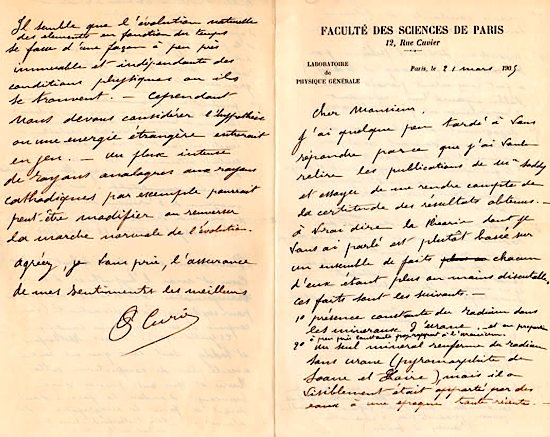 Il semble que l'évolution naturelle
des elements en fonction du temps
se fasse d'une façon à peu près
immuable et indépendante des
conditions physiques ou ils
se trouvent. — Cependant
nous devons considérer l'hypothèse
ou une energie étrangère entrerait
en jeu. — Un flux intense
de rayons analogues aux rayons
cathodiques par exemple pourrait
peut-être modifier ou renverser
la marche normale de l'évolution.
agréez, je vous prie, l'assurance
de mes sentiments les meilleurs
P Curie
FACULTÉ DES SCIENCES DE PARIS
12, Rue Cuvier
LABORATOIRE
de
PHYSIQUE GÉNÉRALE
Paris, le 21 mars 1905
Cher Monsieur,
J'ai quelque peu tardé à vous
répondre parce que j'ai voulu
relire les publications de Mr Soddy
et essayer de me rendre compte de
la certitude des résultats obtenus. —
à vrai dire la théorie dont je
vous ai parlé est plutôt basée sur
un ensemble de faits chacun
d'eux étant plus ou moins discutable,
ces faits sont les suivants. —
1o présence constante du radium dans
les mineraux d'urane, et en proportion
à peu près constante par rapport à l'uranium
2o Un seul mineral renferme du radium
sans urane (pyromorphite de
Saone et Loire) mais il a
visiblement était apporté par des
eaux à une epoque toute récente. —